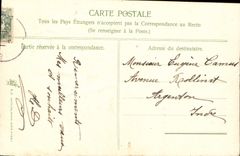 CARTE POSTALE
Tous les Pays Étrangers n'acceptent pas la Correspondance au Recto
(Se renseigner à la Poste.)
Partie réservée à la correspondance.
Adresse du destinataire.
Monsieur Eugène Camus
Avenue Rollinat
Argenton
Indre
Bien
Nos meilleurs vœux
et souhaits